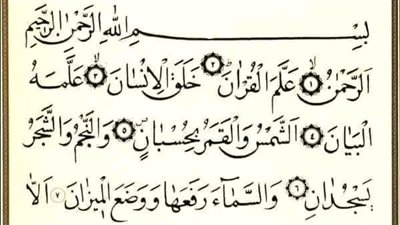 بِسْمِ اللهِ الرَّحْمٰنِ الرَّحِيمِ
اَلرَّحْمٰنُ ۙ ﴿١﴾ عَلَّمَ الْقُرْاٰنَ ۜ ﴿٢﴾ خَلَقَ الْاِنْسَانَ ۙ ﴿٣﴾ عَلَّمَهُ
الْبَيَانَ ﴿٤﴾ اَلشَّمْسُ وَالْقَمَرُ بِحُسْبَانٍ ۖ ﴿٥﴾ وَالنَّجْمُ وَالشَّجَرُ
يَسْجُدَانِ ﴿٦﴾ وَالسَّمَاءَ رَفَعَهَا وَوَضَعَ الْمِيزَانَ ﴿٧﴾ اَلَّا